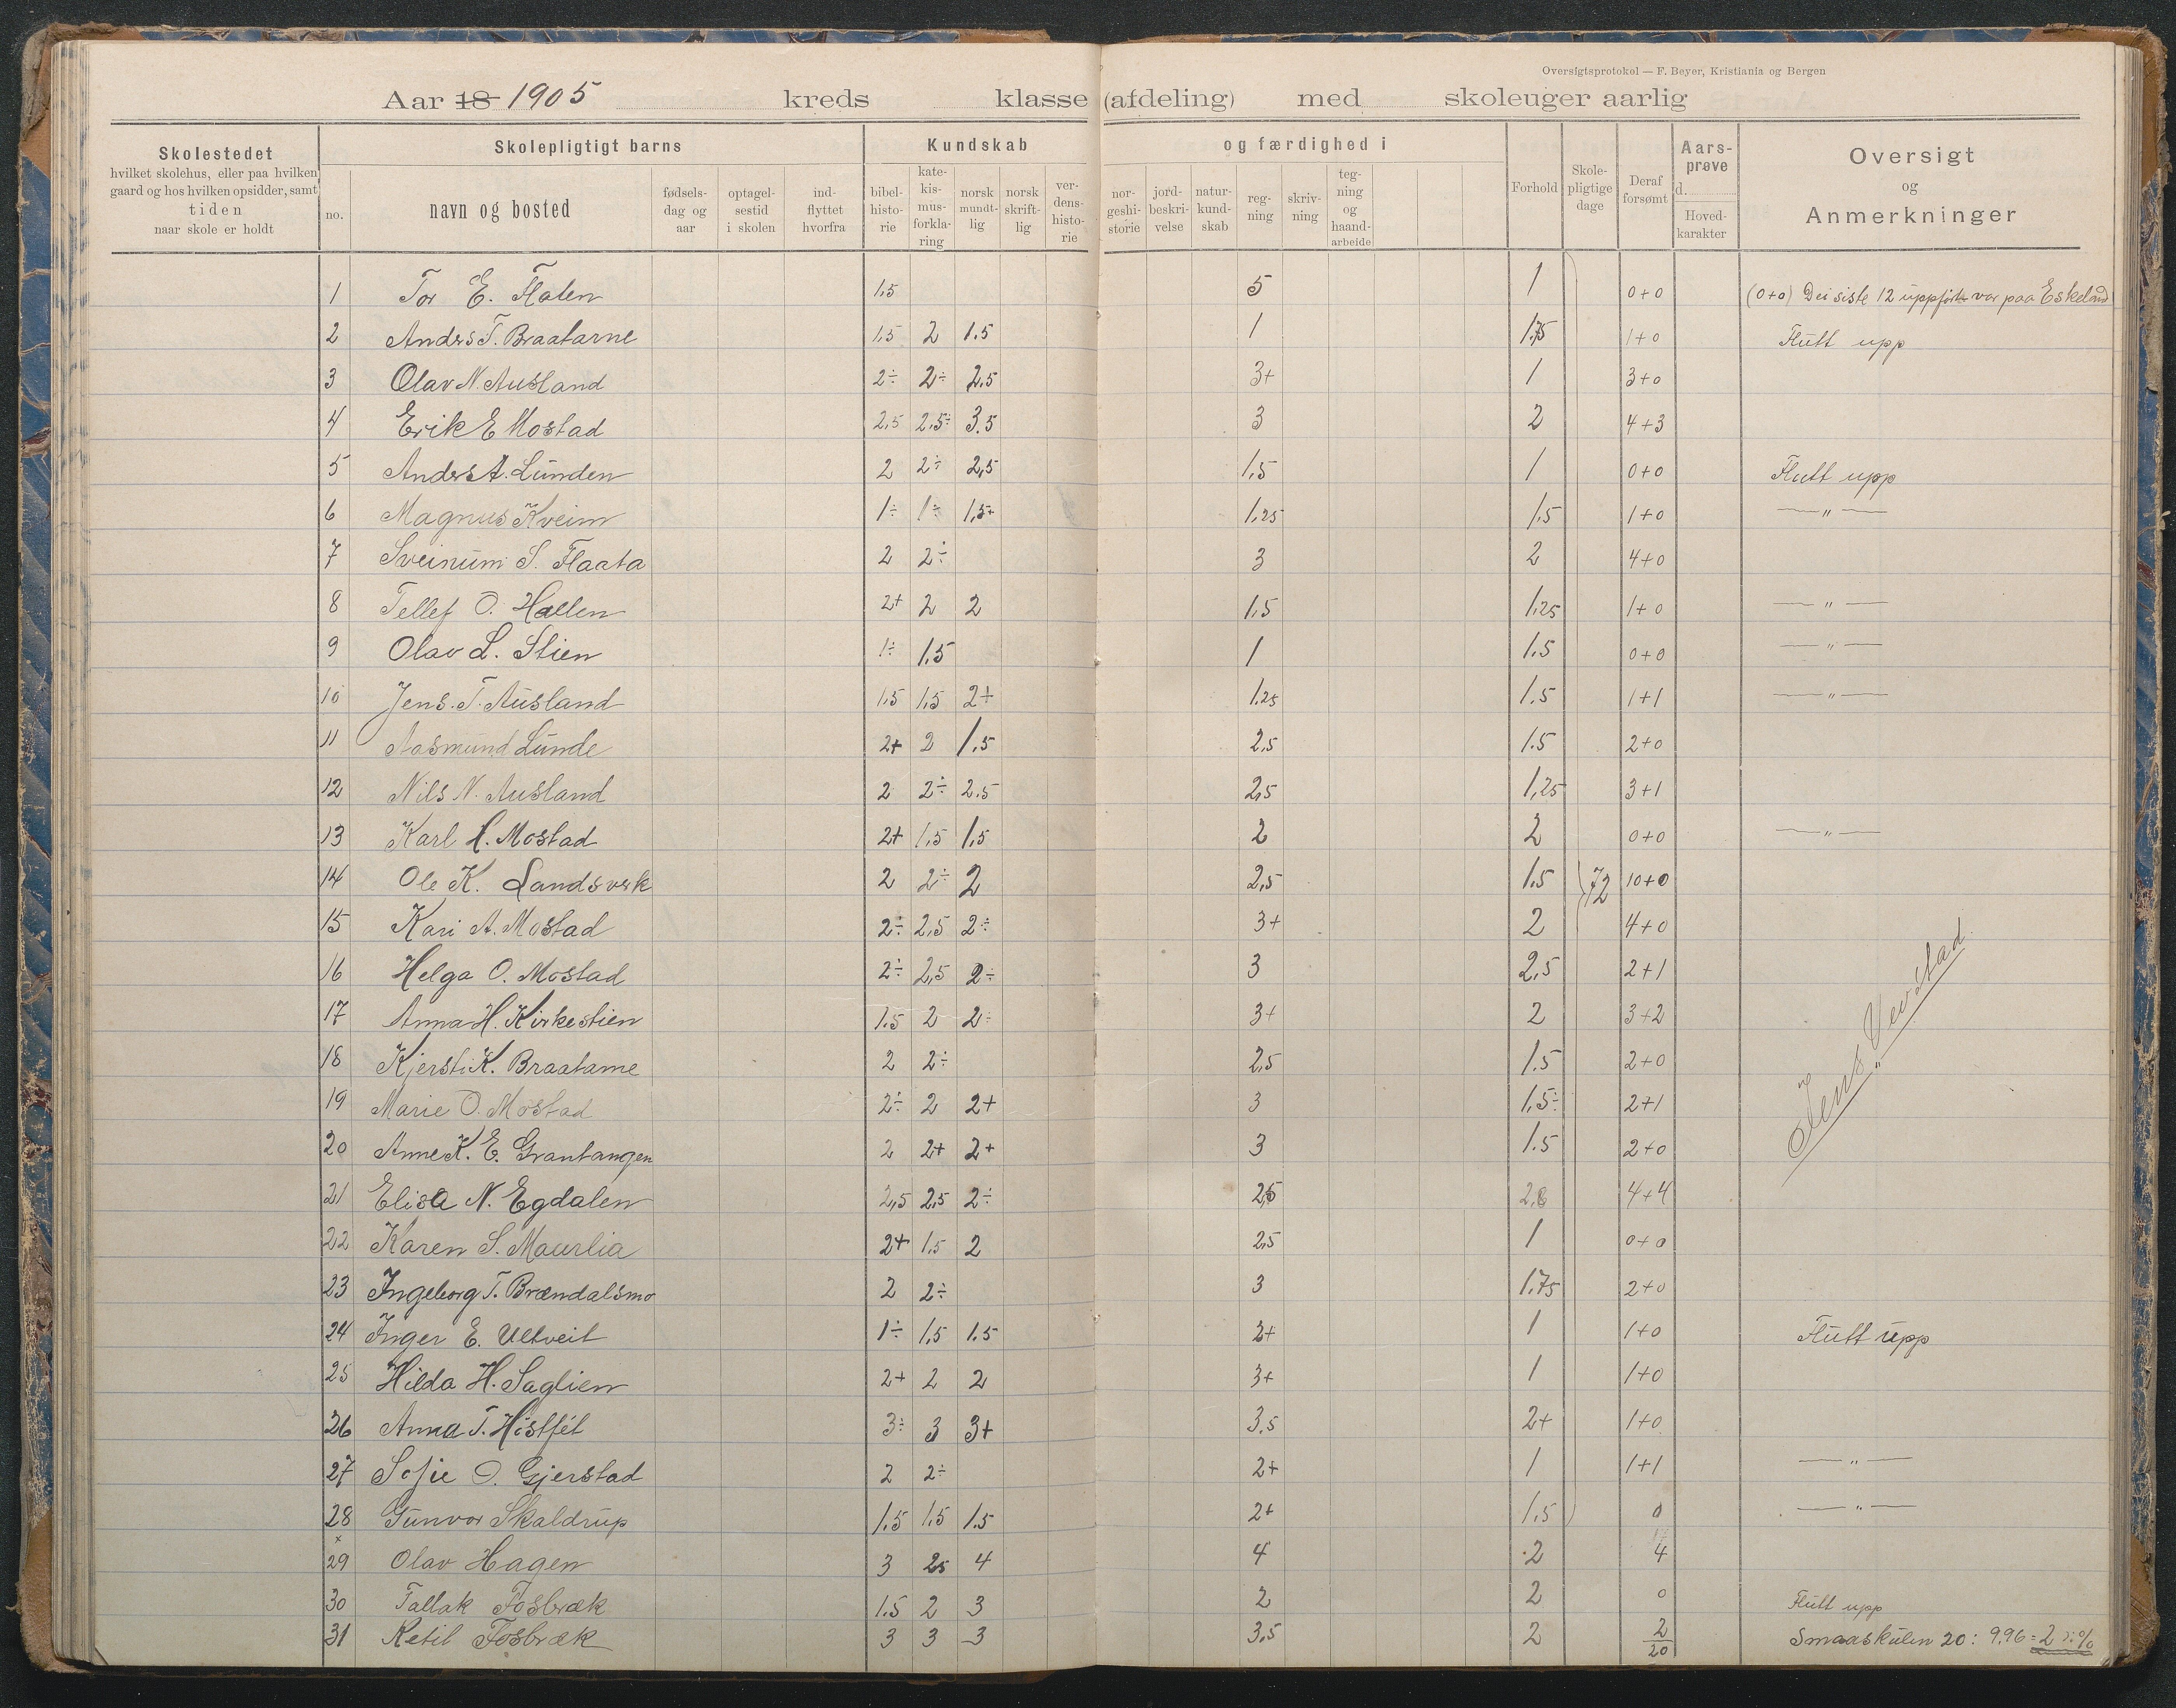 Oversigtsprotokol — F. Beyer, Kristiania og Bergen
Aar 18 1905 kreds klasse (afdeling) med skoleuger aarlig
Skolestedet
hvilket skolehus, eller paa hvilken
gaard og hos hvilken opsidder, samt
tiden
naar skole er holdt
Skolepligtigt barns
no.
navn og bosted
fødsels-
dag og
aar
optagel-
sestid
i skolen
ind-
flyttet
hvorfra
Kundskab og færdighed i
bibel-
histo-
rie
kate-
kis-
mus-
forkla-
ring
norsk
mundt-
lig
norsk
skrift-
lig
ver-
dens-
histo-
rie
nor-
geshi-
storie
jord-
beskri-
velse
natur-
kund-
skab
reg-
ning
skriv-
ning
teg-
ning
og
haand-
arbeide
Forhold
Skole-
pligtige
dage
Deraf
forsømt
Aars-
prøve
d.
Hoved-
karakter
Oversigt
og
Anmerkninger
1 Tor E. Flaten 1.5 5 1 0+0 (0+0) Dei siste 12 uppførte var paa Eskeland
2 Anders T. Braatarne 1.5 2 1.5 1 1.75 1+0 Flutt upp
3 Olav N. Ausland 2÷ 2÷ 2.5 3+ 1 3+0
4 Erik E Mostad 2,5 2,5÷ 3.5 3 2 4+3
5 Anders A. Lunden 2 2÷ 2,5 1.5 1 0+0 Flutt upp
6 Magnus Kveim 1÷ 1÷ 1,5+ 1,25 1.5 1+0 — " —
7 Sveinum S. Flaata 2 2÷ 3 2 4+0
8 Tellef O. Hallen 2+ 2 2 1.5 1,25 1+0 — " —
9 Olav L. Stien 1÷ 1.5 1 1.5 0+0 — " —
10 Jens. T. Ausland 1.5 1.5 2+ 1.25 1.5 1+1 — " —
11 Aasmund Lunde 2+ 2 1.5 2.5 1.5 2+0
12 Nils N. Ausland 2 2÷ 2.5 2,5 1,25 3+1
13 Karl H. Mostad 2+ 1.5 1.5 2 2 0+0 — " —
14 Ole K. Landsverk 2 2÷ 2 2,5 1.5 72 10+0
15 Kari A. Mostad 2÷ 2,5 2÷ 3+ 2 4+0
16 Helga O. Mostad 2÷ 2,5 2÷ 3 2,5 2+1
17 Anna H. Kirkestien 1.5 2 2÷ 3+ 2 3+2
18 Kjersti K. Braatarne 2 2÷ 2,5 1.5 2+0
19 Marie O. Mostad 2÷ 2 2+ 3 1,5÷ 2+1
20 Anne K. E. Grantangen 2 2+ 2+ 3 1.5 2+0
21 Elisa N. Egdalen 2,5 2,5 2÷ 2,5 4+4
22 Karen S. Maurlia 2+ 1.5 2 2,5 1 0+0
23 Ingeborg T. Brændalsmo 2 2÷ 3 1.75 2+0
24 Inger E. Ultveit 1÷ 1.5 1.5 2+ 1 1+0 Flutt upp
25 Hilda H. Saglien 2+ 2 2 3+ 1 1+0
26 Anna T. Høstføt 3÷ 3 3+ 3.5 2+ 1+0
27 Sofie O. Gjerstad 2 2÷ 2+ 1 1+1 — " —
28 Gunvor Skaldrup 1.5 1.5 1.5 2+ 1.5 0 — " —
x
29 Olav Hagen 3 2,5 4 4 2 4
30 Tallak Fosbræk 1.5 2 3 2 2 0 Flutt upp
31 Ketil Fosbræk 3 3 3 3,5 2 2 Smaaskulen 20: 9.96 = 2 %
20
Jens Vevstad.